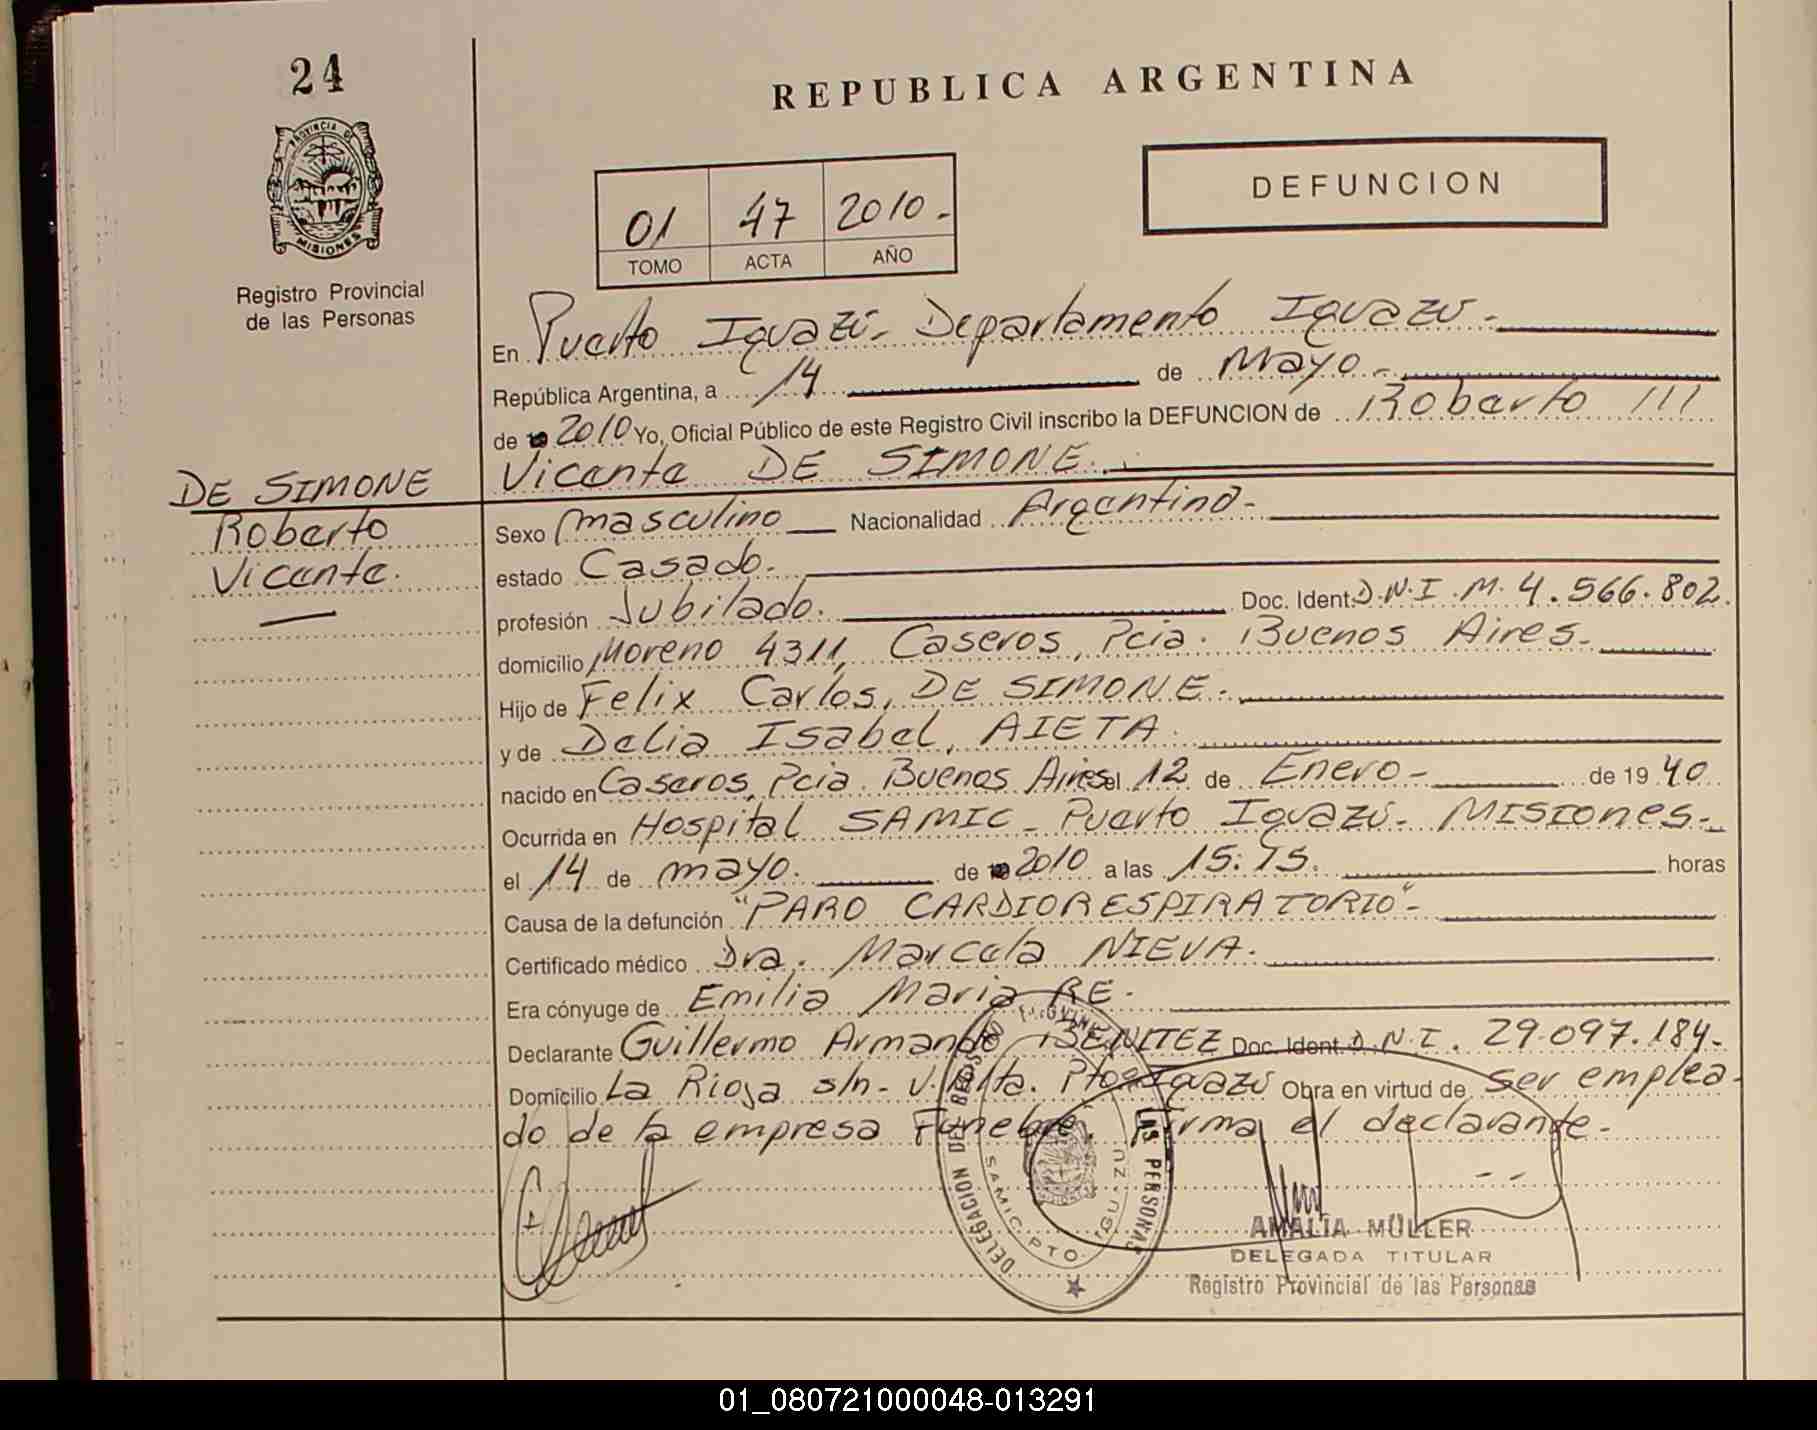 24
REPUBLICA ARGENTINA
PROVINCIA DE
MISIONES
DEFUNCION
01 47 2010.-
TOMO ACTA AÑO
Registro Provincial
de las Personas
En Puerto Iguazú.- Departamento Iguazú.-
República Argentina, a 14 de Mayo.-
de 2010 Yo, Oficial Público de este Registro Civil inscribo la DEFUNCION de Roberto ///
Vicente DE SIMONE.
DE SIMONE
Roberto
Vicente.
Sexo masculino Nacionalidad Argentina-
estado Casado.-
profesión Jubilado. Doc. Ident. D.N.I.M. 4.566.802.
domicilio Moreno 4311, Caseros, Pcia. Buenos Aires.-
Hijo de Felix Carlos, DE SIMONE.-
y de Delia Isabel, AIETA.
nacido en Caseros, Pcia. Buenos Aires el 12 de Enero.- de 19 40
Ocurrida en Hospital SAMIC- Puerto Iguazú.- MISIONES.-
el 14 de mayo. de 2010 a las 15:15. horas
Causa de la defunción "PARO CARDIORESPIRATORIO"-
Certificado médico Dra. Marcela NIEVA.
Era cónyuge de Emilia Maria RE.-
Declarante Guillermo Armando BENITEZ Doc. Ident. D.N.I. 29.097.184.-
Domicilio La Rioja s/n- V. Alta. Pto. Iguazú Obra en virtud de ser emplea-
do de la empresa Fúnebre. Firma el declarante.-
DELEGACION DEL REGISTRO PROVINCIAL DE LAS PERSONAS
SAMIC. PTO. IGUAZU
AMALIA MÜLLER
DELEGADA TITULAR
Registro Provincial de las Personas
01_080721000048-013291